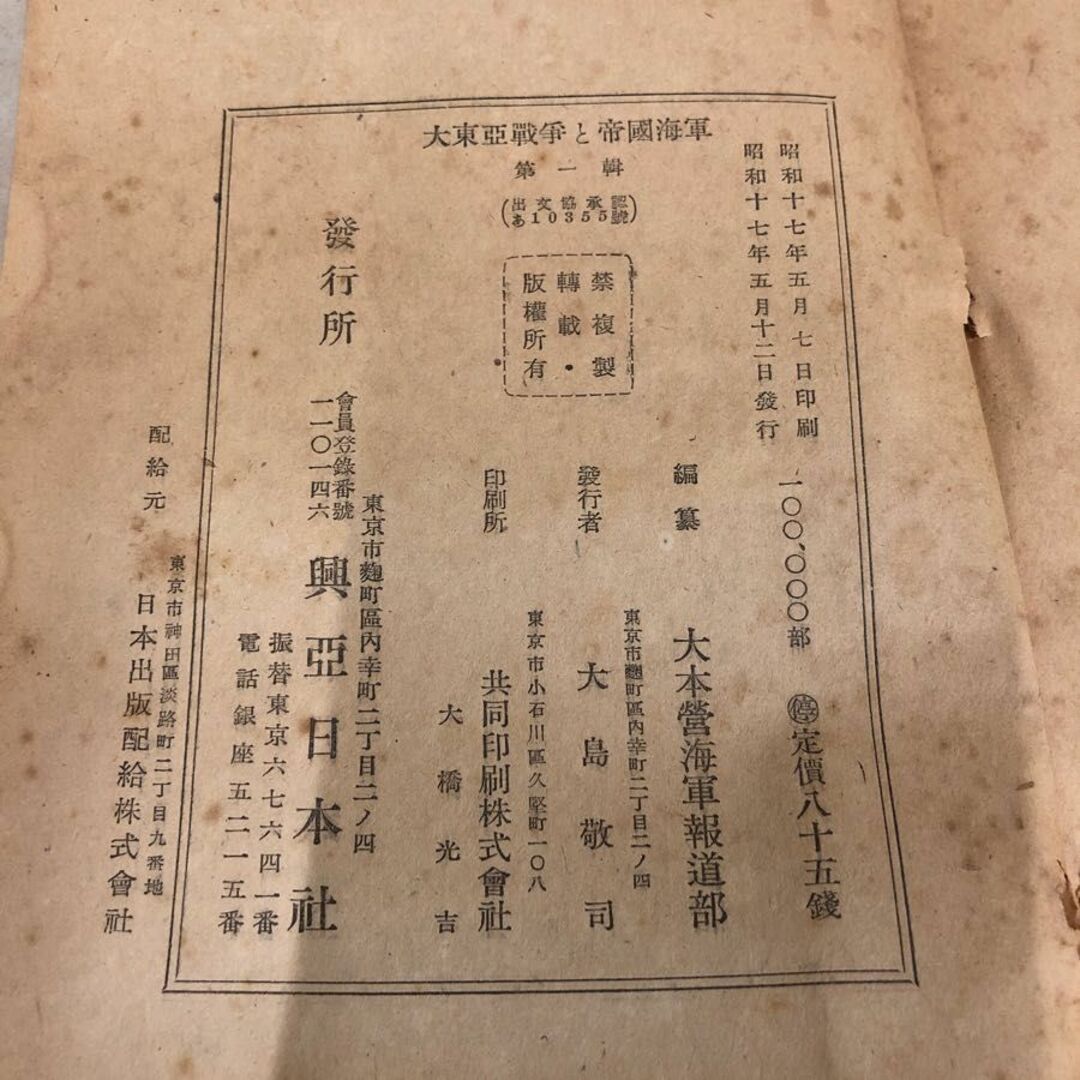 大東亞戰爭と帝國海軍
第一輯
(出文協承認
あ10355號)
昭和十七年五月七日印刷
昭和十七年五月十二日發行
一〇〇、〇〇〇部
停定價八十五錢
禁複製
轉載・
版權所有
編纂
大本營海軍報道部
東京市麴町區內幸町二丁目二ノ四
發行者
大島敬司
東京市小石川區久堅町一〇八
印刷所
共同印刷株式會社
大橋光吉
東京市麴町區內幸町二丁目二ノ四
發行所
會員登錄番號
一一〇一四六
興亞日本社
振替東京六七六四一番
電話銀座五二一五番
配給元
東京市神田區淡路町二丁目九番地
日本出版配給株式會社